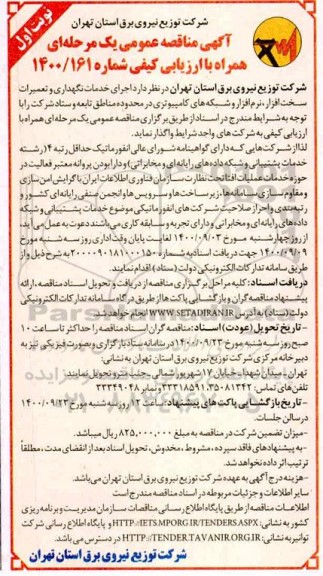 نوبت اول
شرکت توزیع نیروی برق استان تهران
آگهی مناقصه عمومی یک مرحله‌ای
همراه با ارزیابی کیفی شماره ۱۴۰۰/۱۶۱
شرکت توزیع نیروی برق استان تهران در نظر دارد اجرای خدمات نگهداری و تعمیرات
سخت افزار، نرم افزار و شبکه های کامپیوتری در محدوده مناطق تابعه و ستاد شرکت را با
توجه به شرایط مندرج در اسناد از طریق برگزاری مناقصه عمومی یک مرحله ای همراه با
ارزیابی کیفی به شرکت های واجد شرایط واگذار نماید.
لذا از شرکت‌هایی که دارای گواهینامه شورای عالی انفورماتیک حداقل رتبه ۴ (رشته
خدمات پشتیبانی و شبکه داده های رایانه ای و مخابراتی) و دارا بودن پروانه معتبر فعالیت در
حوزه خدمات عملیات افتا تحت نظارت سازمان فناوری اطلاعات ایران با گرایش امن سازی
و مقاوم سازی سامانه‌ها، زیرساخت‌ها و سرویس ها و انجمن صنفی رایانه ای کشور و
رتبه بندی و احراز صلاحیت شرکت های انفورماتیکی موضوع خدمات پشتیبانی و شبکه
داده های رایانه ای و مخابراتی و دارای تجربه و سابقه کاری می باشند دعوت به عمل می آید،
از روز چهارشنبه مورخ ۱۴۰۰/۰۹/۰۳ لغایت پایان وقت اداری روز سه شنبه مورخ
۱۴۰۰/۰۹/۰۹ جهت دریافت اسناد به شماره ۲۰۰۰۰۹۰۱۸۱۱۰۰۰۱۵۰ به شرح ذیل و از
طریق سامانه تدارکات الکترونیکی دولت (ستاد) اقدام نمایند.
دریافت اسناد: کلیه مراحل برگزاری مناقصه از دریافت و تحویل اسناد مناقصه، ارائه
پیشنهاد مناقصه گران و بازگشایی پاکت ها از طریق درگاه سامانه تدارکات الکترونیکی
دولت (ستاد) به آدرس WWW.SETADIRAN.IR انجام خواهد شد.
- تاریخ تحویل (عودت) اسناد: مناقصه گران اسناد مناقصه را حداکثر تا ساعت ۱۰
صبح روز سه شنبه مورخ ۱۴۰۰/۰۹/۲۳ در سامانه ستاد بارگزاری و بصورت فیزیکی نیز به
دبیرخانه مرکزی شرکت توزیع نیروی برق استان تهران به نشانی:
تهران - میدان شهدا - خیابان ۱۷ شهریور شمالی - جنب مترو تحویل نمایند.
تلفن های تماس: ۳۵۰۸۱۳۴۲، ۳۳۳۱۸۵۹۱ و نمابر ۳۳۳۴۹۰۴۸
- تاریخ بازگشایی پاکت های پیشنهاد: ساعت ۱۲ روز سه شنبه مورخ ۱۴۰۰/۰۹/۲۳
در سالن جلسات.
- میزان تضمین شرکت در مناقصه به مبلغ ۸۲۵,۰۰۰,۰۰۰ ریال میباشد.
- به پیشنهادهای فاقد سپرده، مشروط، مخدوش، تحویل اسناد بعد از انقضای مدت، مطلقاً
ترتیب اثر داده نخواهد شد.
- هزینه درج آگهی به عهده شرکت توزیع نیروی برق استان تهران می باشد.
سایر اطلاعات و جزئیات مربوطه در اسناد مناقصه مندرج است
اطلاعات مناقصه از طریق پایگاه اطلاع رسانی مناقصات سازمان مدیریت و برنامه ریزی
کشور به نشانی: HTTP://IETS.MPORG.IR/TENDERS.ASPX و پایگاه اطلاع رسانی شرکت
توانیر به نشانی: HTTP://TENDER.TAVANIR.ORG.IR در دسترس می باشد.
شرکت توزیع نیروی برق استان تهران